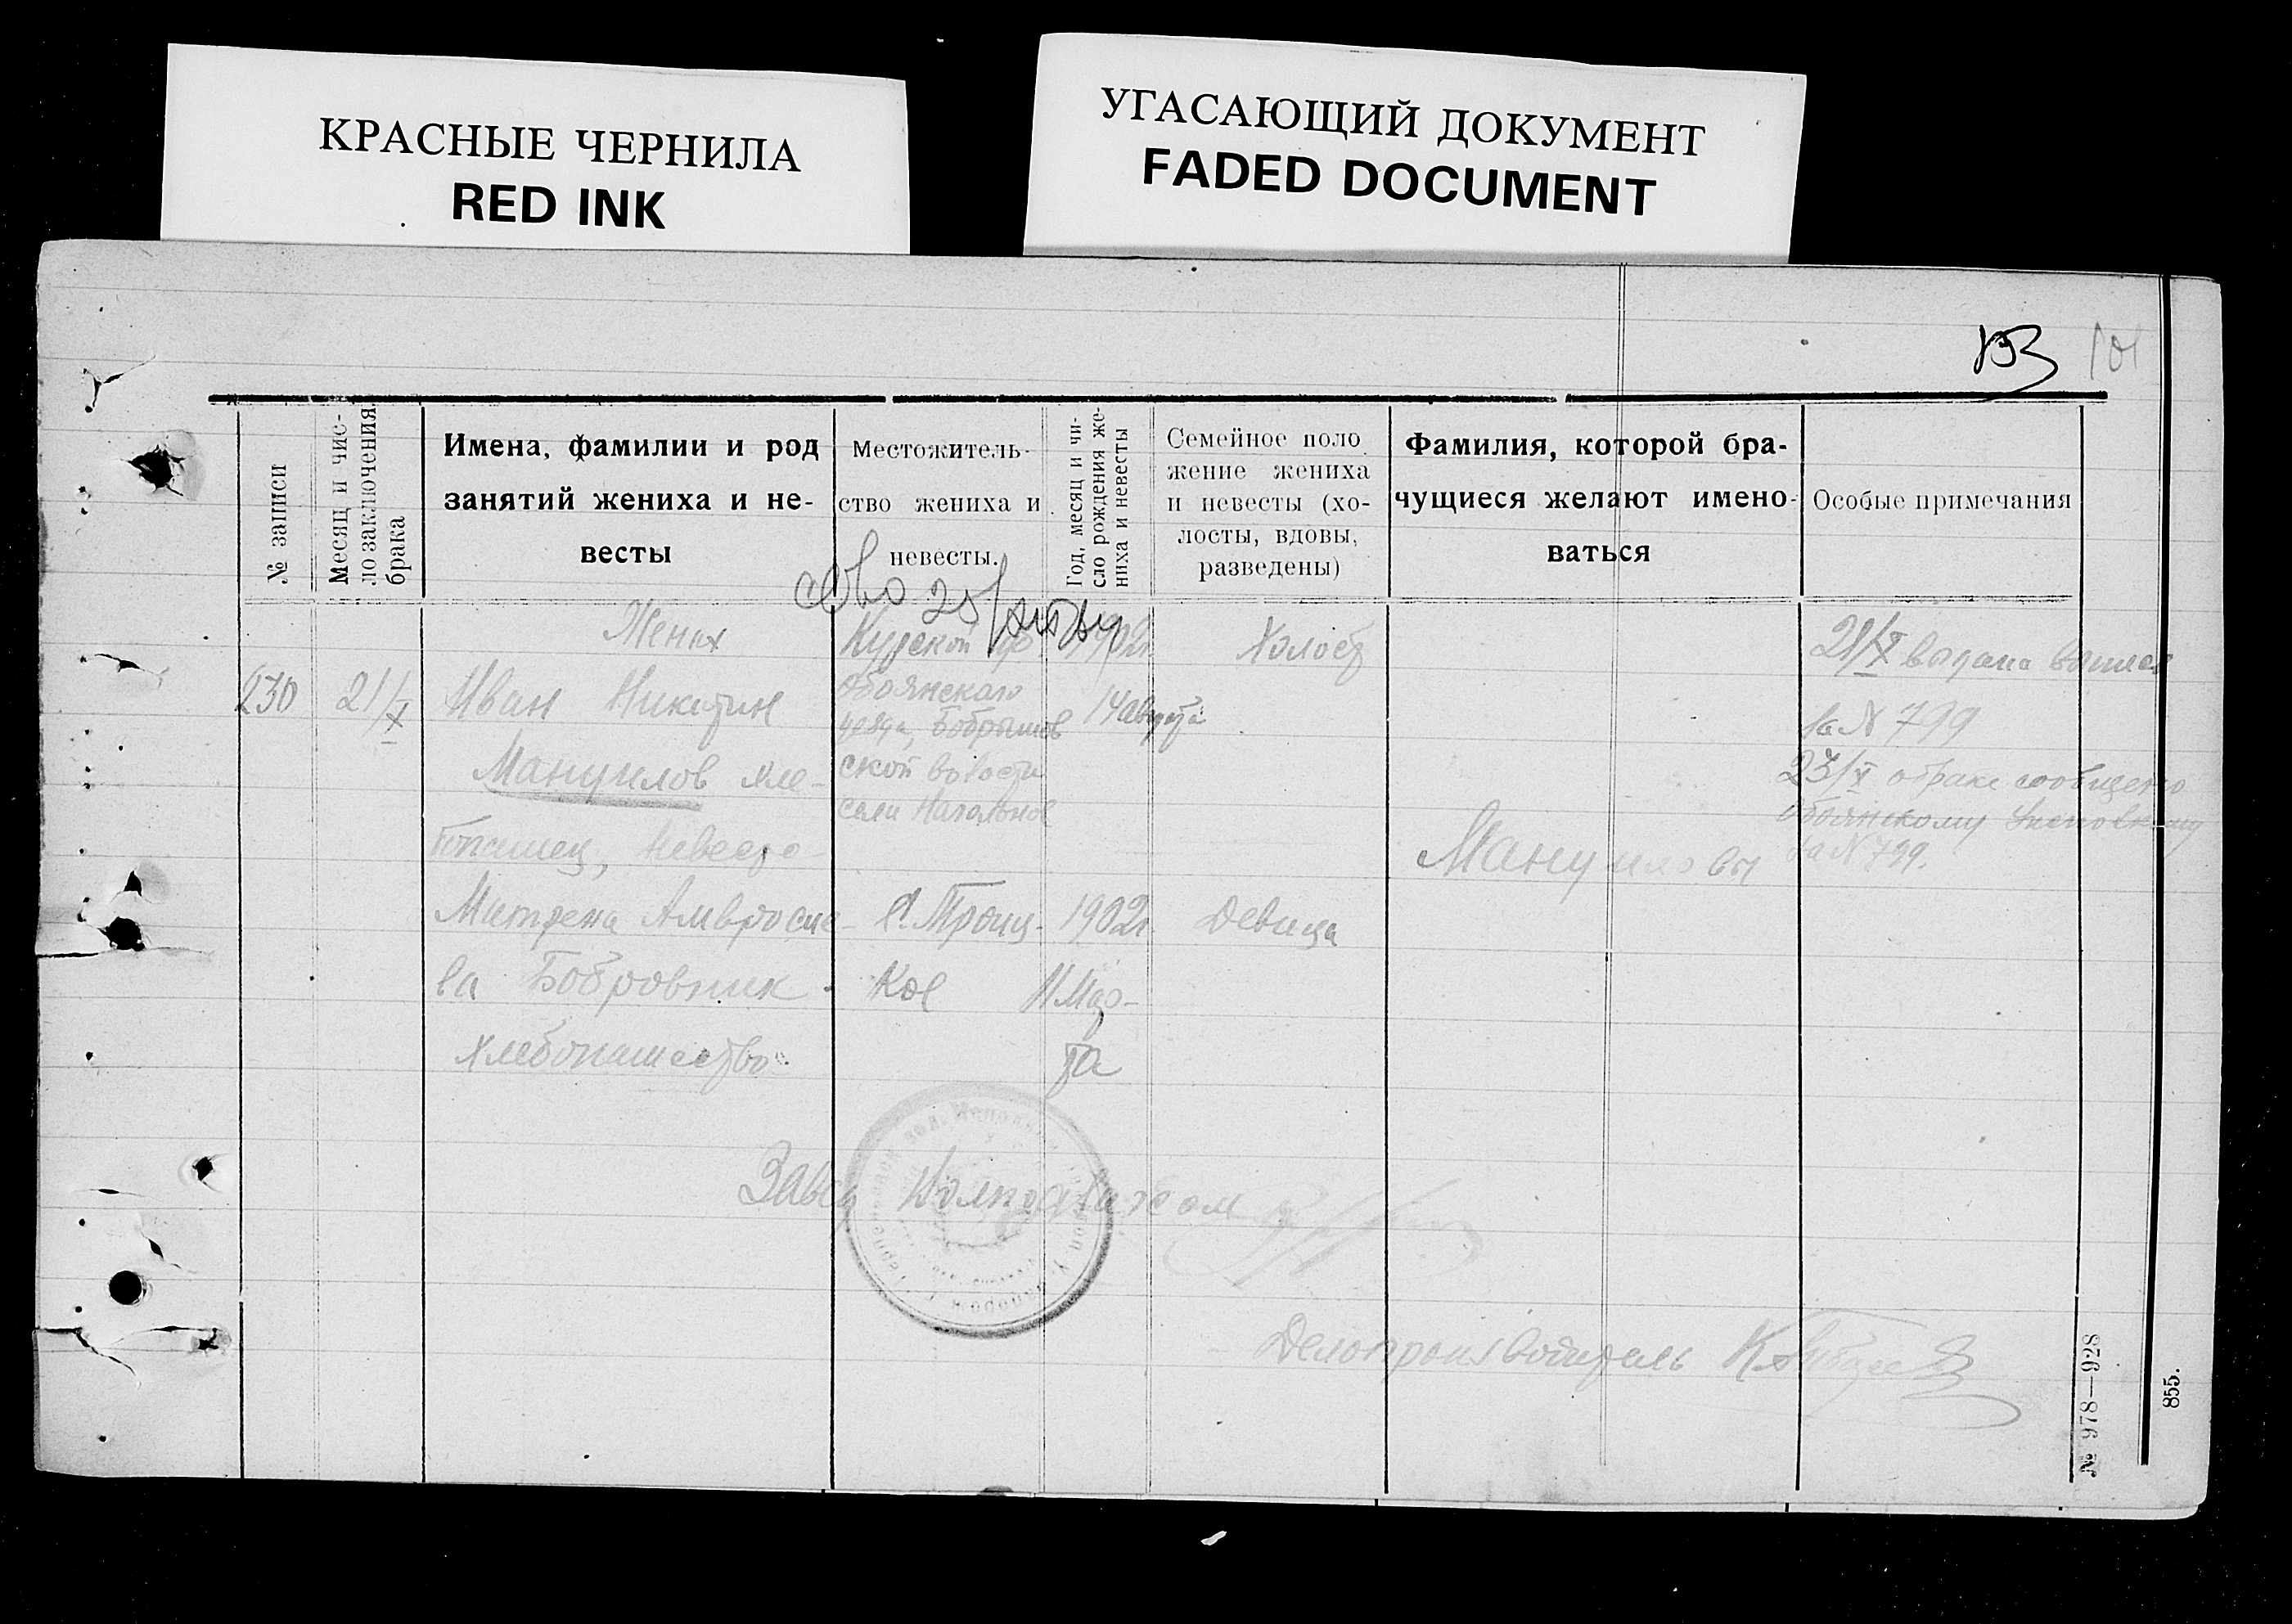 КРАСНЫЕ ЧЕРНИЛА
RED INK
УГАСАЮЩИЙ ДОКУМЕНТ
FADED DOCUMENT
101
№ записи
Месяц и чис-
ло заключения
брака
Имена, фамилии и род
занятий жениха и не-
весты
Местожитель-
ство жениха и
невесты.
Год, месяц и чи-
сло рождения же-
ниха и невесты
Семейное поло
жение жениха
и невесты (хо-
лосты, вдовы,
разведены)
Фамилия, которой бра-
чущиеся желают имено-
ваться
Особые примечания
230
21/X
Жених
Иван Никитин
Мануилов хле-
бопашец, Невеста
Митрена Амвросие-
ва Бобровник
хлебопашество
Курской
Обоянского
уезда, Бобрышов
ской волости
села Нагольное
С. Троиц-
кое
1902г.
14 августа
1902г.
11 Мар-
та
Холост
Девица
Мануиловы
21/X выдана
за N 799
23/X о браке сообщено
Обоянскому
за N 799.
Завед
Делопроизводитель
№ 978—928
855.